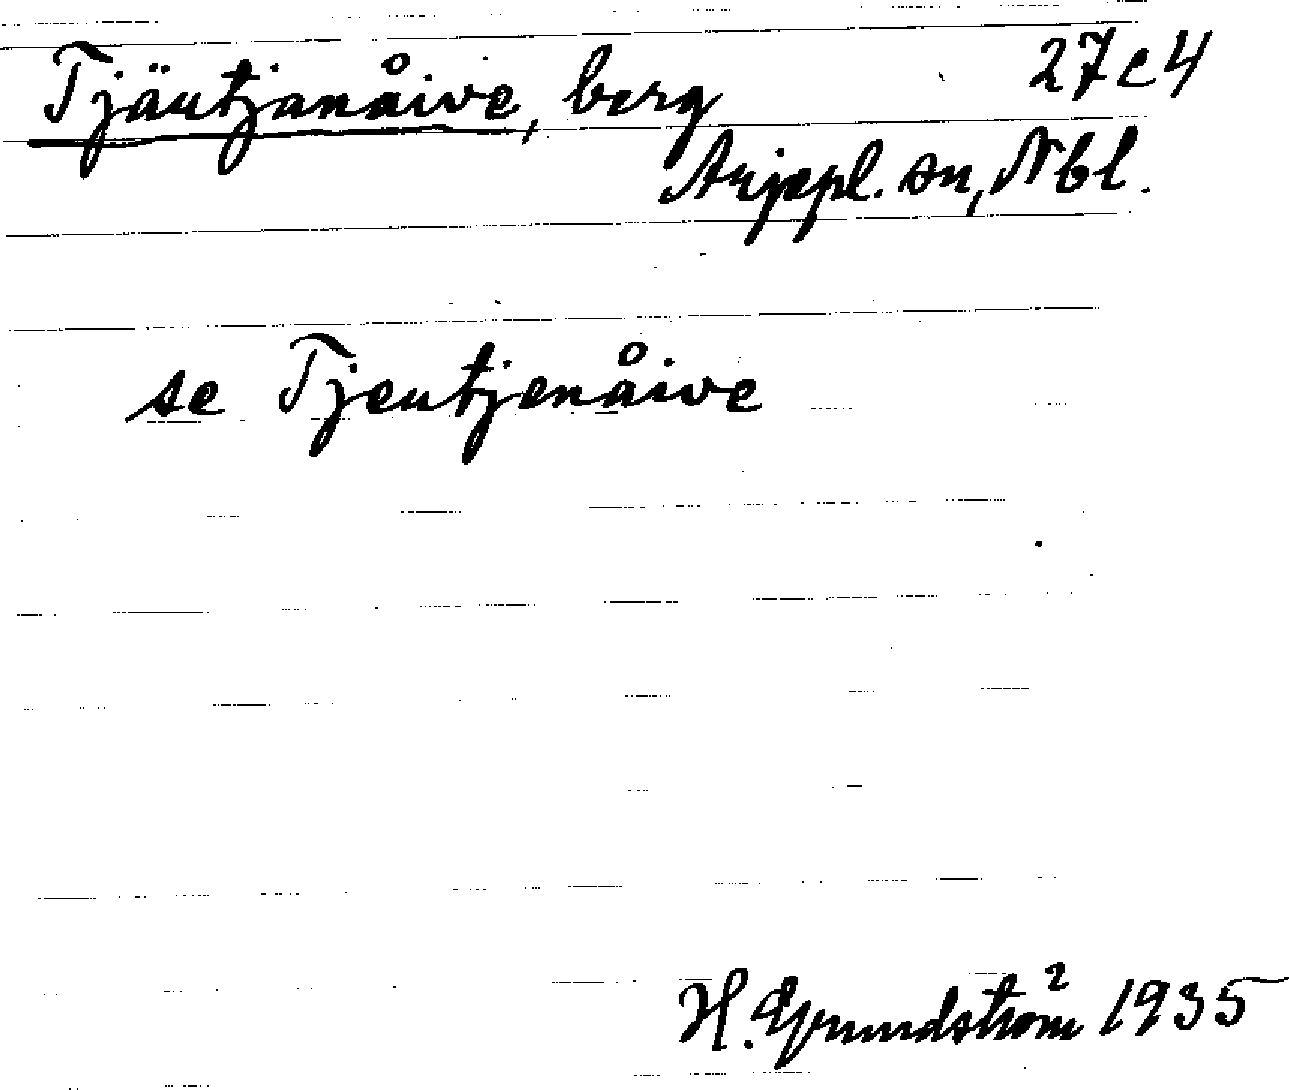 Tjäutjanåive, berg 27c4
Arjepl. sn, Nbl.
se Tjeutjenåive
H. Grundström 1935